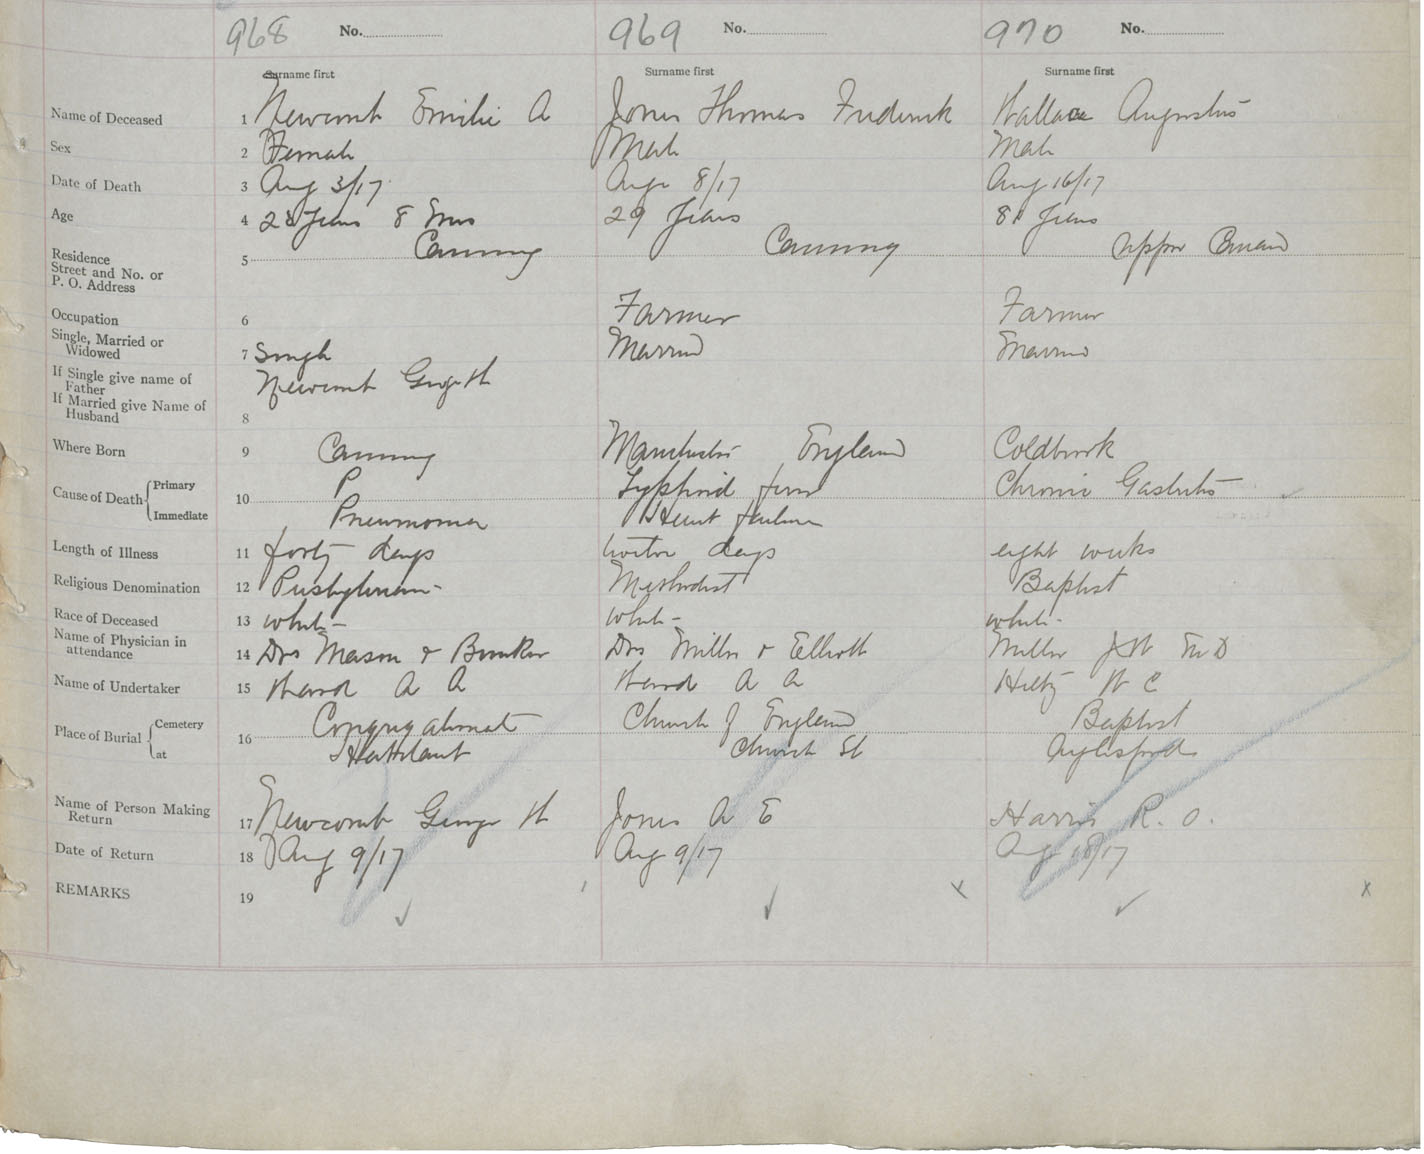 968 No. 969 No. 970 No.
Surname first Surname first Surname first
Name of Deceased 1 Newcomb Emilie A Jones Thomas Frederick Wallace Augustus
Sex 2 Female Male Male
Date of Death 3 Aug 3/17 Aug 8/17 Aug 16/17
Age 4 years 8 Mos 29 years years
Residence
Street and No. or
P. O. Address
5 Canning Canning Upper Canard
Occupation 6 Farmer Farmer
Single, Married or
Widowed
7 Single Married Married
If Single give name of
Father
If Married give Name of
Husband
8 Newcomb George H
Where Born 9 Canning Manchester England Coldbrook
Cause of Death Primary P Typhoid fever Chronic Gastritis
10
Immediate Pneumonia Heart failure
Length of Illness 11 forty days days eight weeks
Religious Denomination 12 Presbyterian Methodist Baptist
Race of Deceased 13 white white white
Name of Physician in
attendance
14 Drs Mason & Drs Miller & Elliott Miller J W M D
Name of Undertaker 15 Ward A A Ward A A Hiltz W C
Place of Burial Cemetery Congregational Church of England Baptist
16
at Habitant Church St
Name of Person Making
Return
17 Newcomb George H Jones A E Harris R. O.
Date of Return 18 Aug 9/17 Aug 9/17 Aug 18/17
REMARKS 19